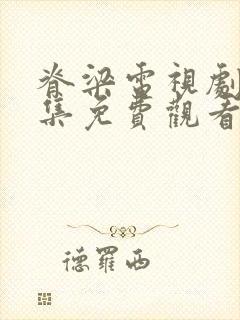 脊梁電視劇
集免費觀看
德羅西